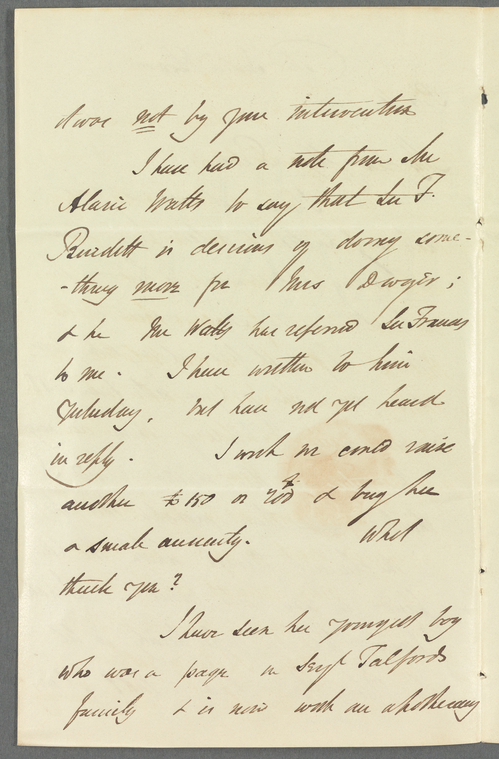 was not by your intervention
I have had a note from Mr
Alaric Watts to say that Sir F.
Burdett is desirous of doing some-
-thing more for Mrs Dwyer;
& he Mr Watts has referred Sir Francis
to me. I have written to him
yesterday, but have not yet heard
in reply. I wish we could raise
another £150 or 200£ & buy her
a small annuity. What
think you?
I have seen her youngest boy
who was a page in Serjt Talfords
family & is now with an apothecary